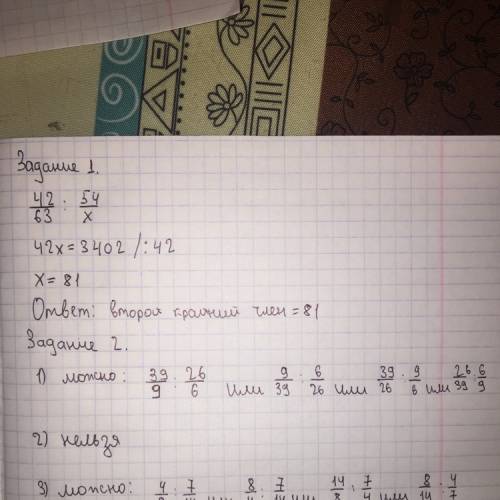 Задание 1.
42/63 : 54/x
42x = 3402 /: 42
x = 81
Ответ: второй крайний член = 81
Задание 2.
1) можно: 39/9 : 26/6 или 9/39 : 6/26 или 39/26 : 9/6 или 26/39 : 6/9
2) нельзя
3) можно: 4 : 7 8 : 7 или 14/8 : 7/4 или 8/14 : 4/7